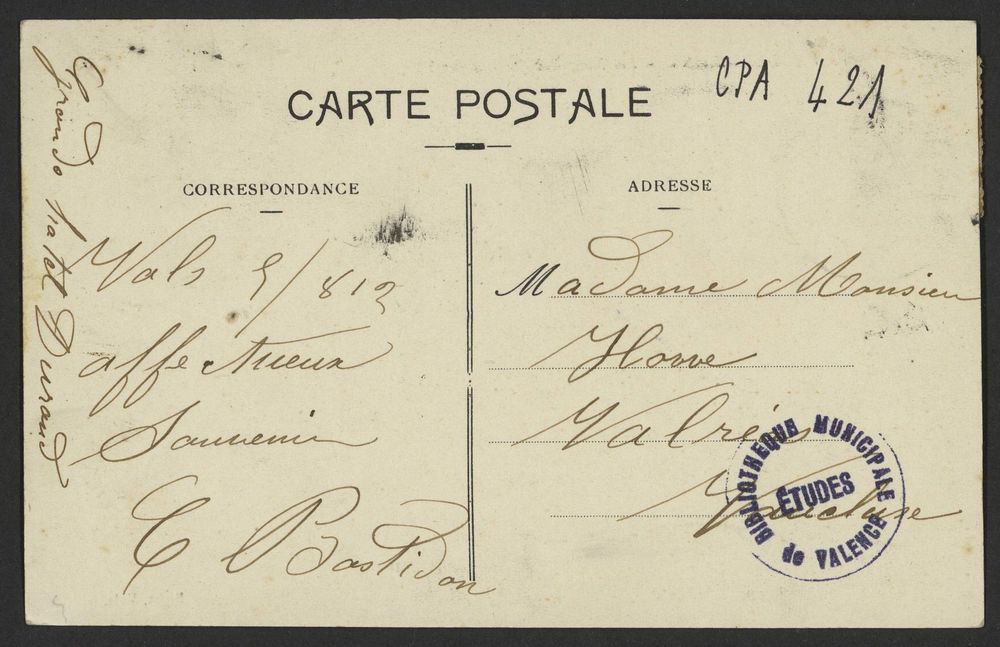 CPA 421
CARTE POSTALE
CORRESPONDANCE
Grands hotel Durand
Vals 5/812
affectueux
Souvenir
E Bastidon
ADRESSE
Madame Monsieur
Valréas
Vaucluse
BIBLIOTHEQUE MUNICIPALE
ÉTUDES
de VALENCE